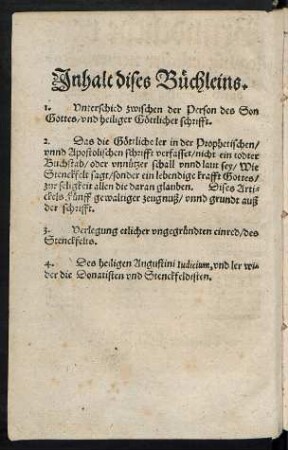 Inhalt dises Büchleins.
1. Vnterschid zwischen der Person des Son
Gottes/vnd heiliger Göttlicher schrifft.
2. Das die Göttliche ler in der Prophetischen/
vnnd Apostolischen schrifft verfasset/nicht ein todter
Buchstab/oder vnnützer schall vnnd laut sey/Wie
Stenckfelt sagt/sonder ein lebendige krafft Gottes/
zur seligkeit allen die daran glauben. Dises Arti-
ckels Fünff gewaltiger zeugnuß/vnnd grundt auß
der schrifft.
3. Verlegung etlicher vngegründten einred/des
Stenckfelts.
4. Des heiligen Augustini iudicium, vnd ler wi-
der die Donatisten vnd Stenckfeldisten.